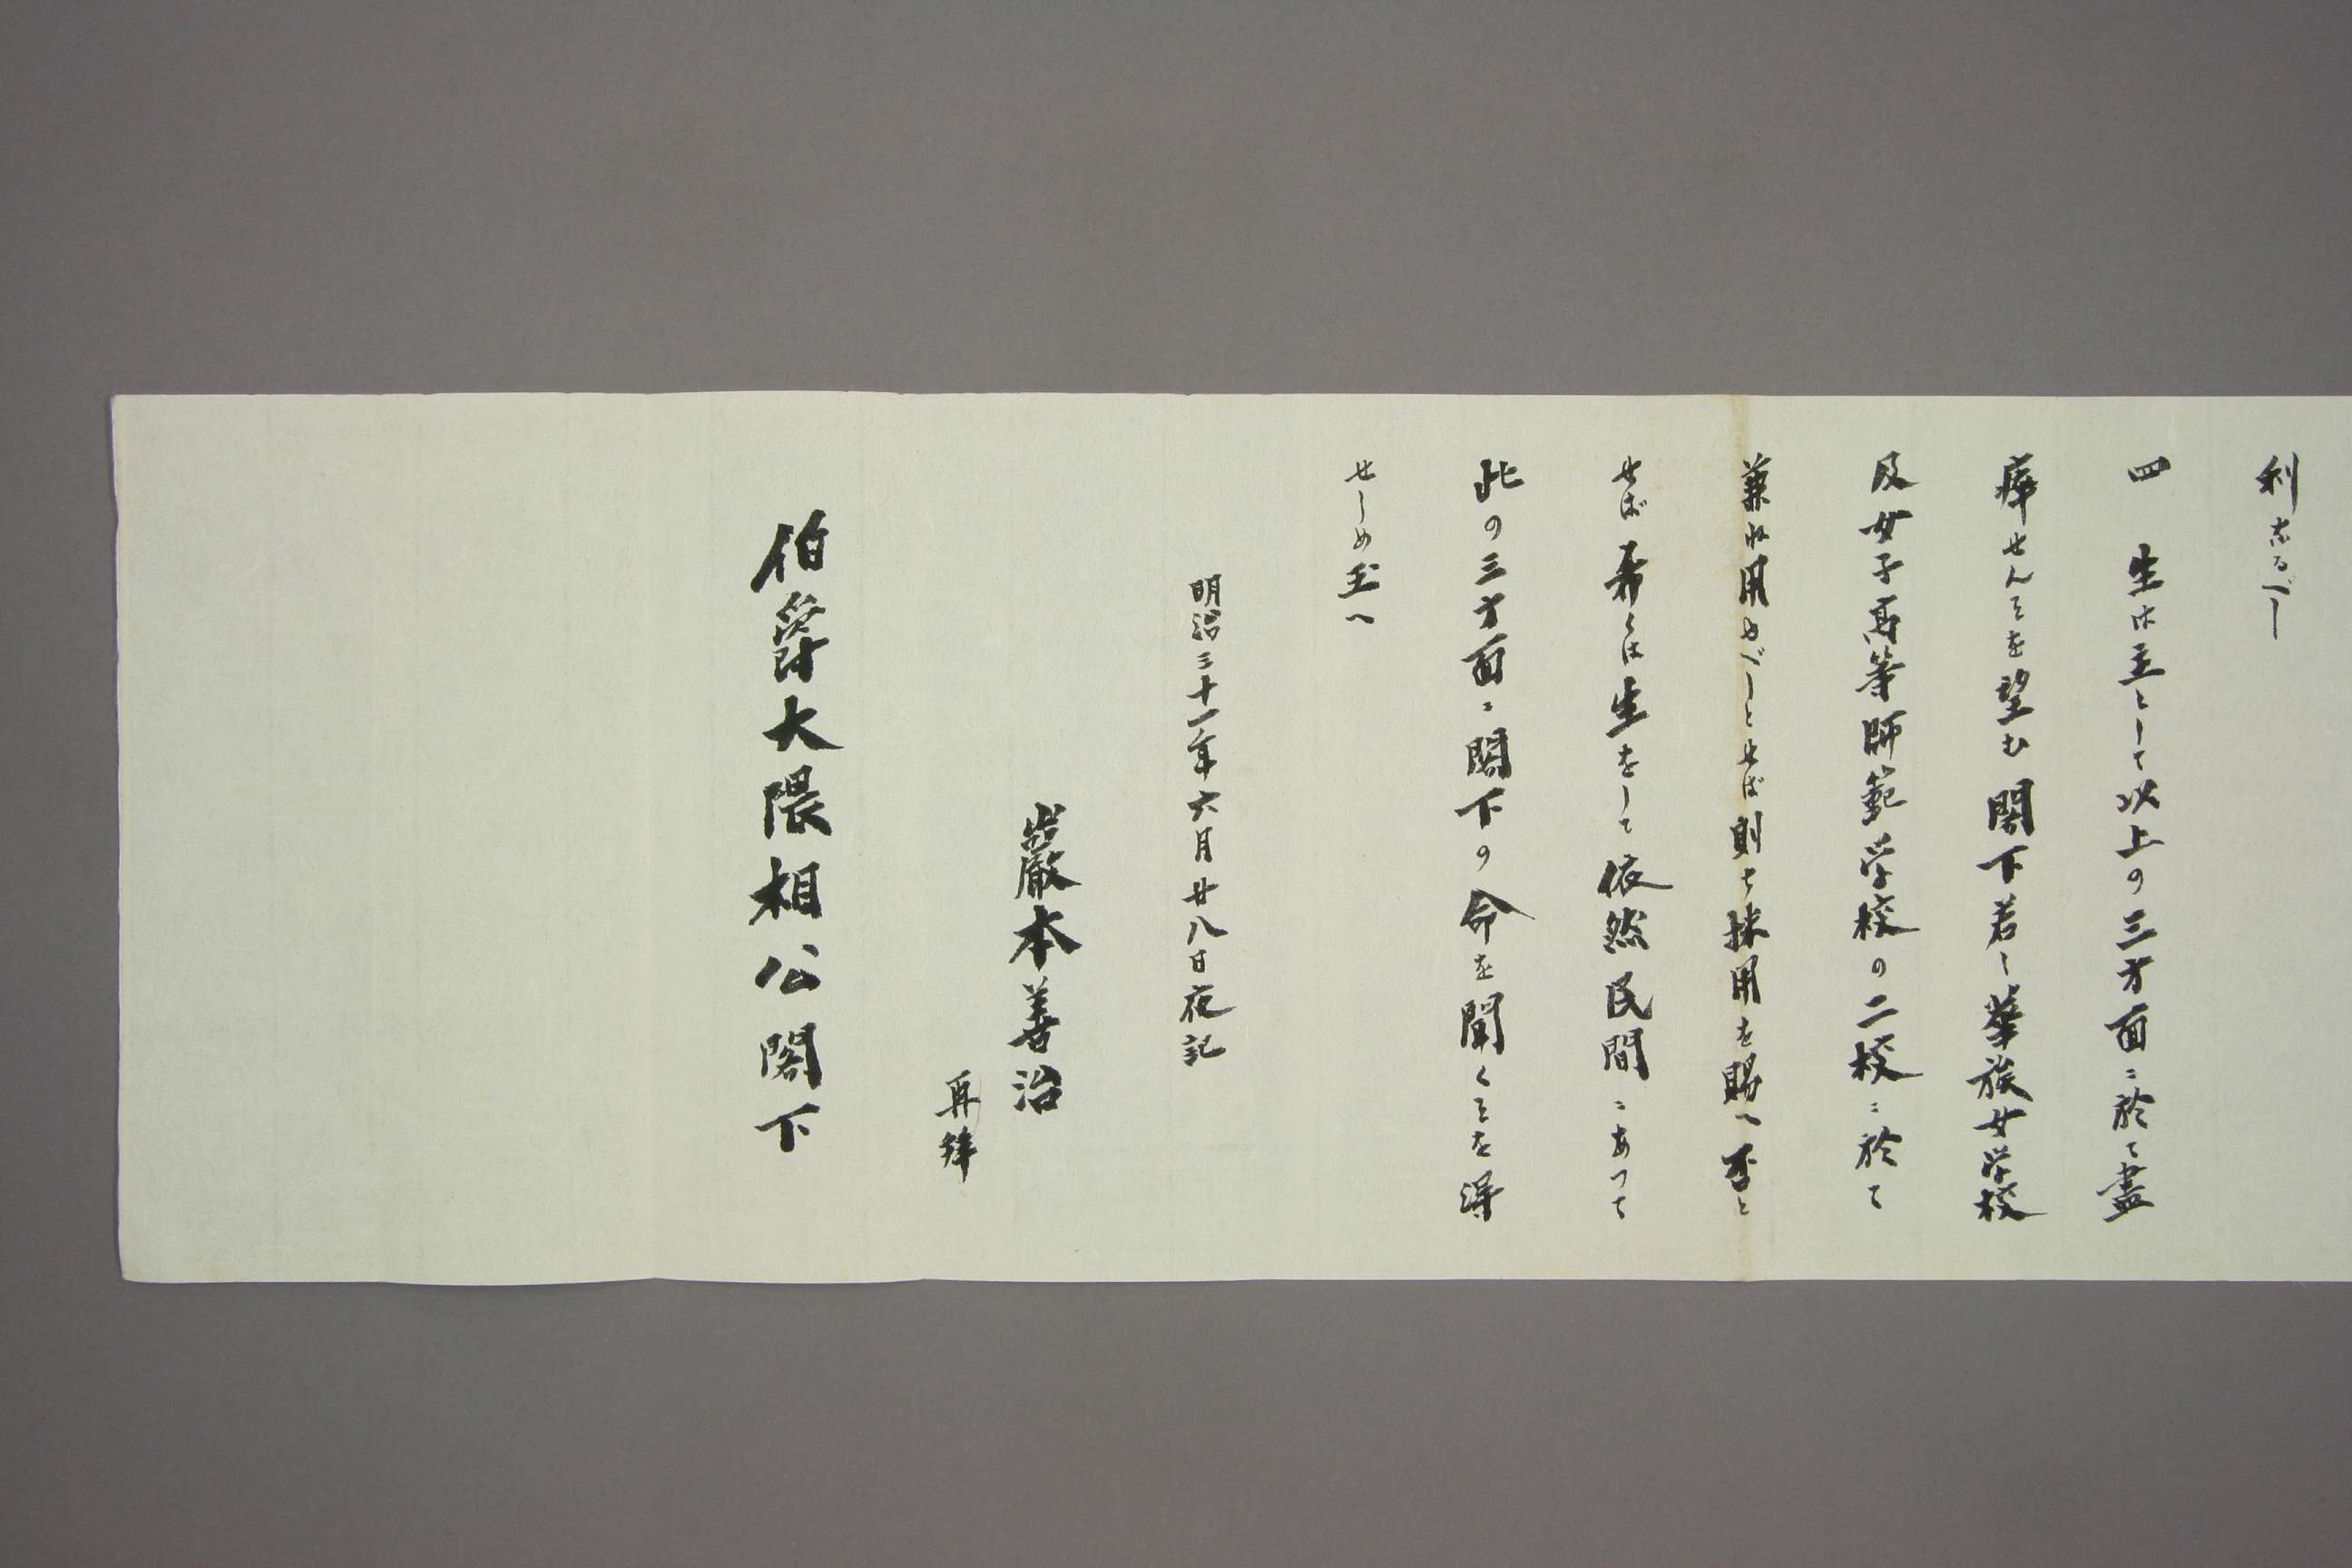 利なるべし
四　生は主として以上の三方面ニ於て盡
瘁せんヿを望む閣下若し華族女学校
及女子高等師範学校の二校ニ於て
兼ね用ゆべしとせば則ち採用を賜へ否と
せば希くは生をして依然民間ニあつて
此の三方面ニ閣下の命を聞くヿを得
せしめ玉へ
明治三十一年六月廿八日夜記
巌本善治
再拜
伯爵大隈相公閣下